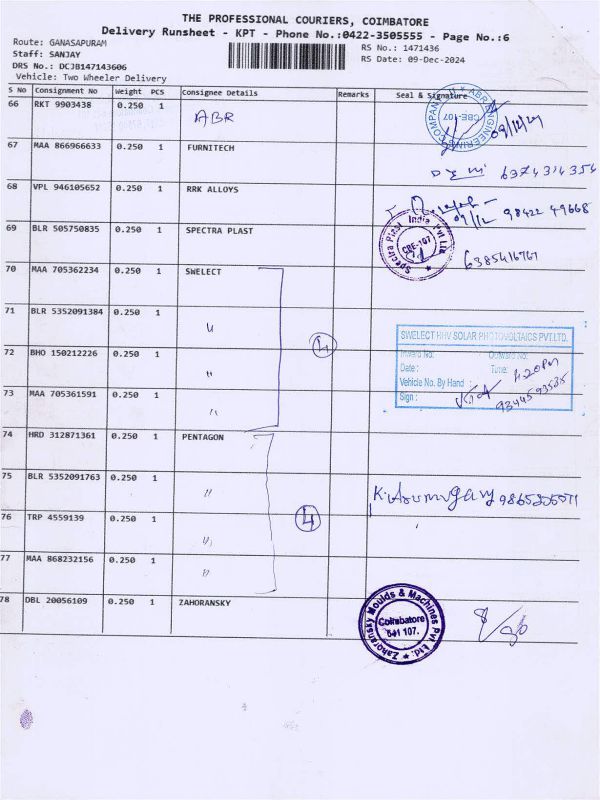 THE PROFESSIONAL COURIERS, COIMBATORE
Delivery Runsheet - KPT - Phone No.:0422-3505555 - Page No.:6
Route: GANASAPURAM
RS No.: 1471436
Staff: SANJAY
RS Date: 09-Dec-2024
DRS No.: DCJB147143606
Vehicle: Two Wheeler Delivery
S No Consignment No Weight PCS Consignee Details Remarks Seal & Signature
66 RKT 9903438 0.250 1 ABR
CBE-107
09/12/24
67 MAA 866966633 0.250 1 FURNITECH
6374314354
68 VPL 946105652 0.250 1 RRK ALLOYS
09/12 98422 49668
69 BLR 505750835 0.250 1 SPECTRA PLAST
Spectra Plast India Pvt Ltd
CBE-107
70 MAA 705362234 0.250 1 SWELECT
71 BLR 5352091384 0.250 1 "
4
SWELECT HHV SOLAR PHOTOVOLTAICS PVT.LTD.
Inward No: Outward No:
Date: Time: 4.20 Pm
Vehicle No. By Hand :
Sign : 9344593535
72 BHO 150212226 0.250 1 "
73 MAA 705361591 0.250 1 "
74 HRD 312871361 0.250 1 PENTAGON
75 BLR 5352091763 0.250 1 "
K. Arumugam
4
76 TRP 4559139 0.250 1 "
77 MAA 868232156 0.250 1 "
78 DBL 20056109 0.250 1 ZAHORANSKY
Zahoransky Moulds & Machines Pvt. Ltd.
Coimbatore
641 107.